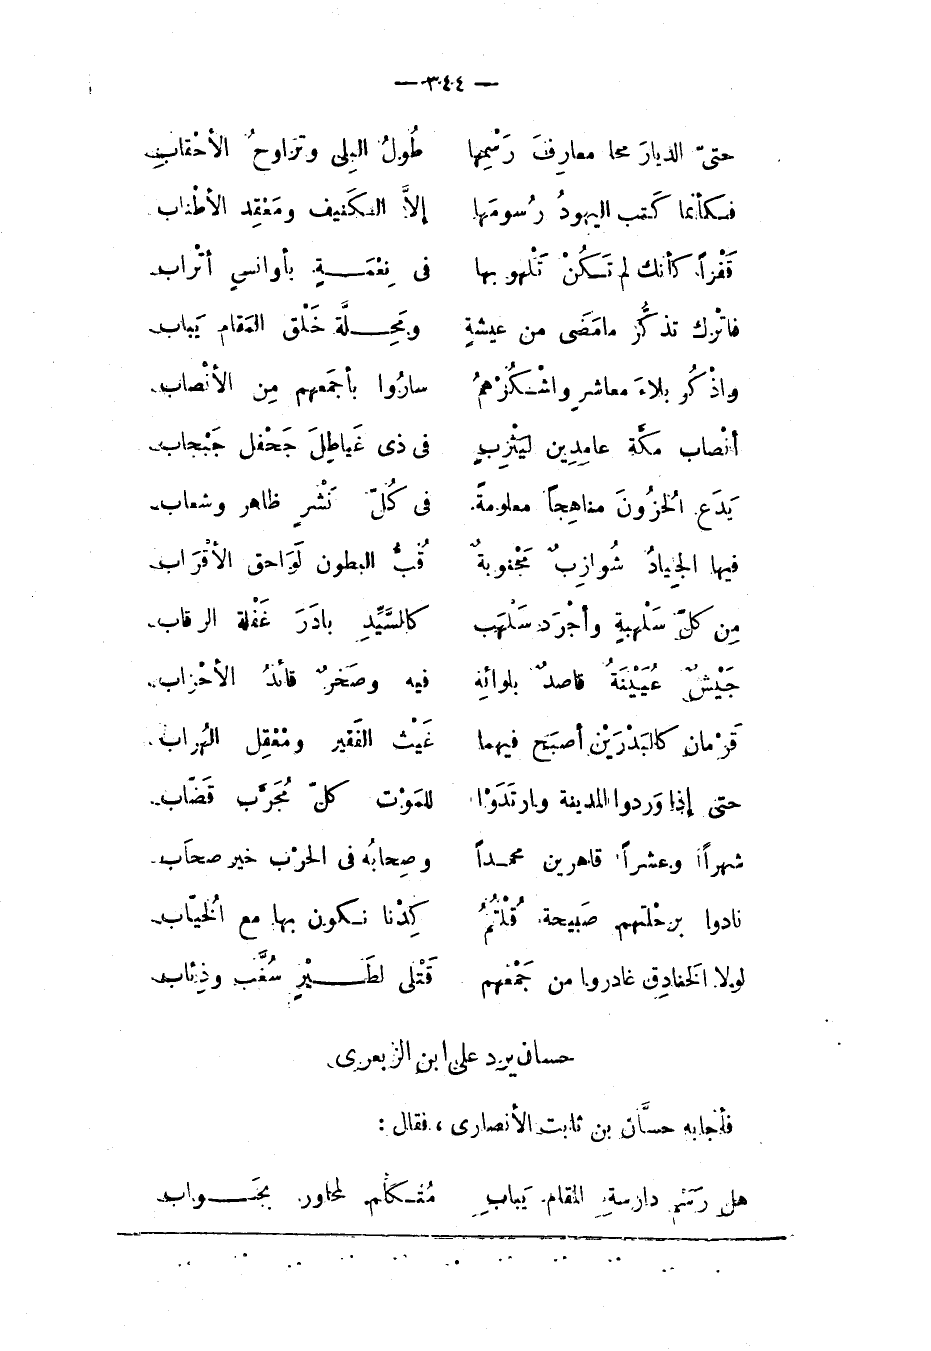 — ٣٤٤ —
حتىّ الديارَ محا معارِفَ رَسْمِها طُولُ البِلى وتَرَاوحُ الأحْقابِ
فكأنما كَتب اليهودُ رُسومَها إلاَّ الكَنيف ومَعْقِد الأطْنابِ
قَفْراً كأنك لم تَكُنْ تَلْهو بها فى نِعْمَةٍ بأوانسٍ أتْرابِ
فاتْرك تذكُّر مامَضَى من عيشةٍ ومَحِلَّة خَلْق المَقام يَبابِ
واذْكُر بلاءَ معاشرٍ واشْكُرْهمُ سارُوا بأجمَعهم مِن الأنْصابِ
أنْصاب مكّة عامِدِين ليَثْرِبٍ فى ذى غَياطِلَ جَحْفل جَبْجابِ
يَدَع الحُزُونَ مناهِجاً معلومةً فى كُلّ نَشْرٍ ظاهر وشعابِ
فيها الجِيادُ شُوازِبٌ مَجْنوبةٌ قُبُّ البطون لَوَاحق الأقْرَابِ
مِن كلّ سَلْهبةٍ وأجْرَد سَلْهَب كالسِّيِّدِ بادَرَ غَفْلة الرقابِ
جَيْشٌ عُيَيْنَةُ قاصدٌ بلوائِه فيه وصَخرٌ قائدُ الأحْزابِ
قَرْمانِ كالبَدْرَيْن أصبَح فيهما غَيْث الفَقير ومَعْقِل الهُرابِ
حتى إذا وَردوا المدينة وارتَدَوْا للمَوْت كلّ مُجَرَّب قَضّابِ
شهراً وعشراً قاهرين محمداً وصِحابُه فى الحَرْب خير صحَابِ
نادوا برحْلتهم صَبيحة قُلْتُمُ كِدْنا نكون بها مع الخُيّابِ
لولا الخَنادِق غادروا من جَمْعهم قَتْلى لطَيْرٍ سُغَّب وذِئابِ
حسان يرد على ابن الزبعرى
فأجابه حسَّان بن ثابت الأنصارى ، فقال :
هل رَسْم دارسةِ المَقام يَبابِ مُتكلِّم لمحاور بجَوابِ